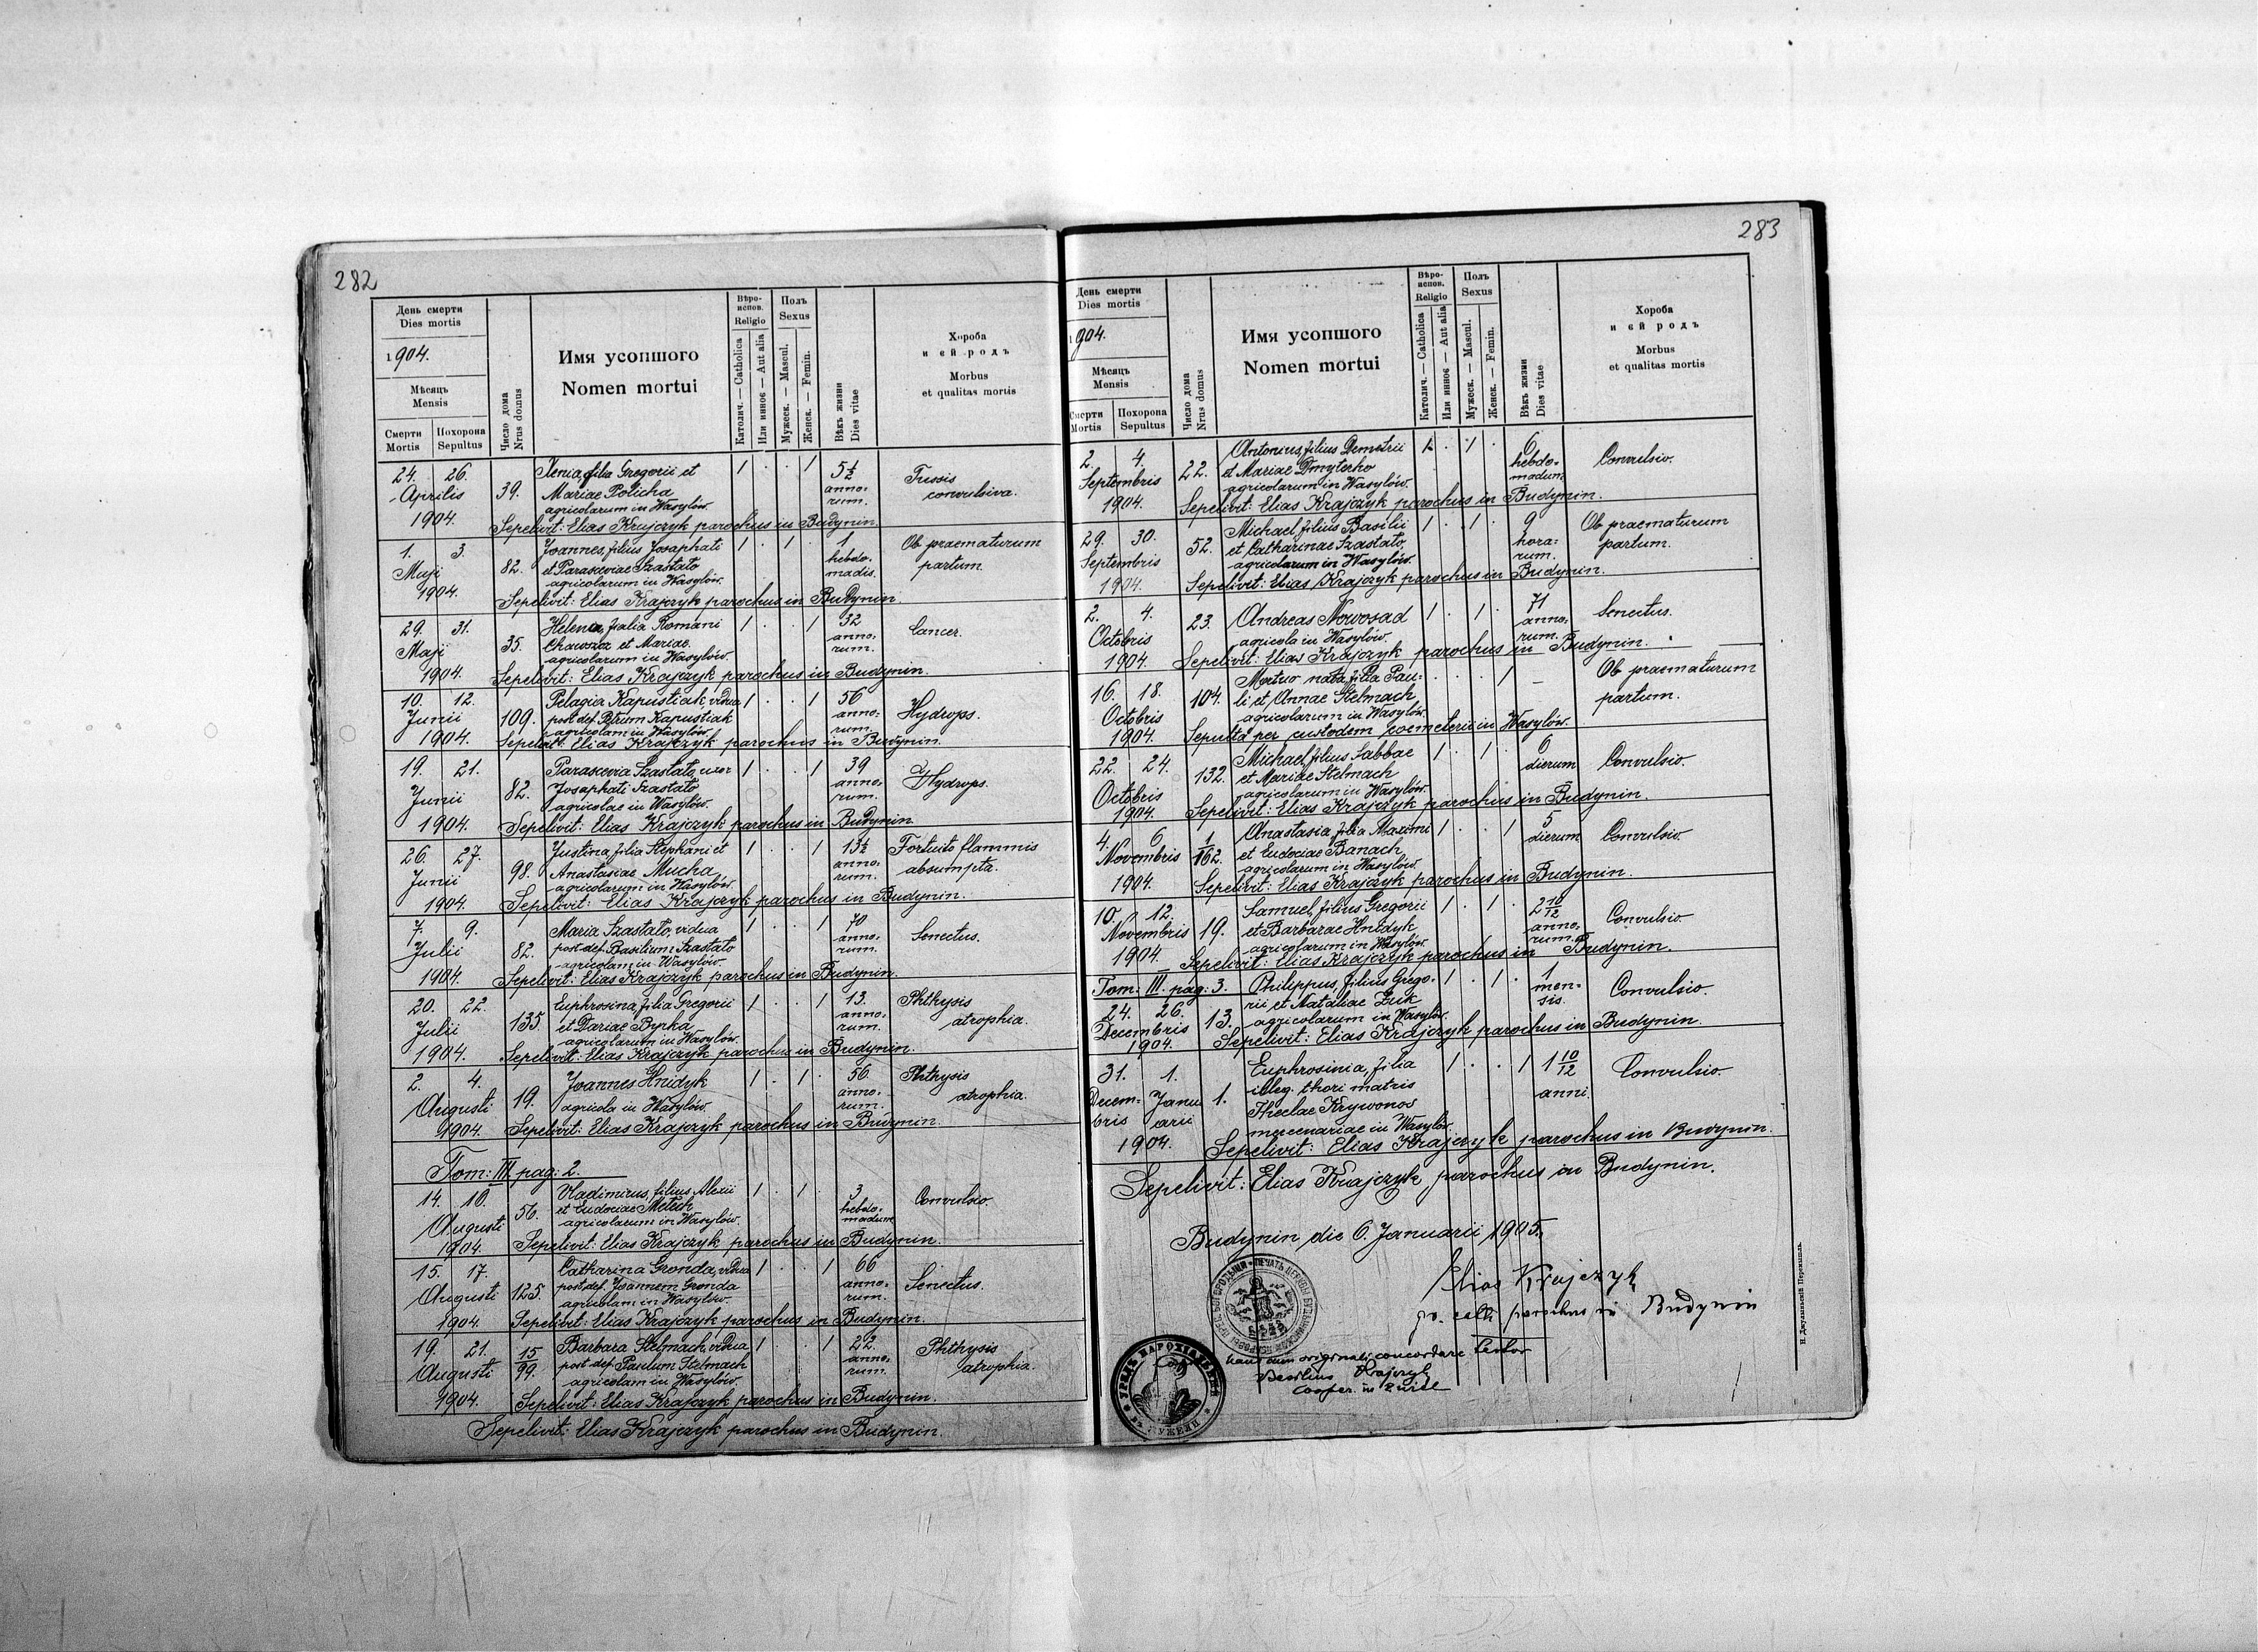 282
День смерти
Dies mortis
1904.
Мѣсяць
Mensis
Смерти
Mortis
Похорона
Sepultus
Число дома
Nrus domus
Имя усопшого
Nomen mortui
Вѣро-
испов.
Religio
Католич. — Catholica
Или инноє — Aut alia
Полъ
Sexus
Мужеск. — Mascul.
Женск. — Femin.
Вѣкъ жизни
Dies vitae
Хороба
и ей родъ
Morbus
et qualitas mortis
24. 26. Xenia, filia Gregorii et 1 . . 1 5½ Tussis
Aprilis 39. Mariae Policha anno- convulsiva.
agricolarum in Wasylów. rum.
1904. Sepelivit: Elias Krajczyk parochus in Budynin.
1. 3. Joannes, filius Josaphati 1 . 1 . 1 Ob praematurum
Maji 82. et Parasceviae Szastato hebdo- partum.
agricolarum in Wasylów. madis.
1904. Sepelivit: Elias Krajczyk parochus in Budynin.
29. 31. Helena, filia Romani 1 . . 1 32 Cancer.
Maji 35. et Mariae anno-
agricolarum in Wasylów. rum.
1904. Sepelivit: Elias Krajczyk parochus in Budynin.
10. 12. Pelagia Kapustiak, vidua 1 . . 1 56 Hydrops.
Junii 109. post def. Petrum Kapustiak anno-
agricolam in Wasylów. rum.
1904. Sepelivit: Elias Krajczyk parochus in Budynin.
19. 21. Parascevia Szastato, uxor 1 . . 1 39 Hydrops.
Junii 82. Josaphati Szastato anno-
agricolae in Wasylów. rum.
1904. Sepelivit: Elias Krajczyk parochus in Budynin.
26. 27. Justina, filia Stephani et 1 . . 1 13½ Fortuito flammis
Junii 98. Anastasiae Mucha anno- absumpta.
agricolarum in Wasylów. rum.
1904. Sepelivit: Elias Krajczyk parochus in Budynin.
7. 9. Maria Szastato, vidua 1 . . 1 70 Senectus.
Julii 82. post def. Basilium Szastato anno-
agricolam in Wasylów. rum.
1904. Sepelivit: Elias Krajczyk parochus in Budynin.
20. 22. Euphrosina, filia Gregorii 1 . . 1 13. Phthysis
Julii 135. et Dariae Byrka anno- atrophia.
agricolarum in Wasylów. rum.
1904. Sepelivit: Elias Krajczyk parochus in Budynin.
2. 4. Joannes Hnidyk 1 . 1 . 56 Phthysis
Augusti 19. agricola in Wasylów. anno- atrophia.
rum.
1904. Sepelivit: Elias Krajczyk parochus in Budynin.
Tom: III. pag: 2.
14. 16. Vladimirus, filius Alexii 1 . 1 . 3 Convulsio.
Augusti 56. et Eudociae hebdo-
agricolarum in Wasylów. madum
1904. Sepelivit: Elias Krajczyk parochus in Budynin.
15. 17. Catharina Gronda, vidua 1 . . 1 66 Senectus.
Augusti 125. post def. Joannem Gronda anno-
agricolam in Wasylów. rum.
1904. Sepelivit: Elias Krajczyk parochus in Budynin.
19. 21. 15/99. Barbara Stelmach, vidua 1 . . 1 22. Phthysis
Augusti post def. Paulum Stelmach anno- atrophia.
agricolam in Wasylów. rum.
1904. Sepelivit: Elias Krajczyk parochus in Budynin.
Sepelivit: Elias Krajczyk parochus in Budynin.
283
День смерти
Dies mortis
1904.
Мѣсяць
Mensis
Смерти
Mortis
Похорона
Sepultus
Число дома
Nrus domus
Имя усопшого
Nomen mortui
Вѣро-
испов.
Religio
Католич. — Catholica
Или инноє — Aut alia
Полъ
Sexus
Мужеск. — Mascul.
Женск. — Femin.
Вѣкъ жизни
Dies vitae
Хороба
и ей родъ
Morbus
et qualitas mortis
2. 4. Antonius, filius Demetrii 1 . 1 . 6 Convulsio.
Septembris 22. et Mariae Dmyterko hebdo-
agricolarum in Wasylów. madum
1904. Sepelivit: Elias Krajczyk parochus in Budynin.
29. 30. Michael, filius Basilii 1 . 1 . 9 Ob praematurum
Septembris 52. et Catharinae Szastato, hora- partum.
agricolarum in Wasylów. rum.
1904. Sepelivit: Elias Krajczyk parochus in Budynin.
2. 4. 23. Andreas Nowosad 1 . 1 . 71 Senectus.
Octobris agricola in Wasylów. anno-
rum.
1904. Sepelivit: Elias Krajczyk parochus in Budynin.
16. 18. Mortuo nata, filia Pau- . . . 1 – Ob praematurum
Octobris 104. li et Annae Stelmach partum.
agricolarum in Wasylów.
1904. Sepulta per custodem coemeterii in Wasylów.
22. 24. Michael, filius Sabbae 1 . 1 . 6 Convulsio.
Octobris 132. et Mariae Stelmach dierum
agricolarum in Wasylów.
1904. Sepelivit: Elias Krajczyk parochus in Budynin.
4. 6 1/162. Anastasia, filia Maximi 1 . . 1 5 Convulsio
Novembris et Eudociae Banach dierum
agricolarum in Wasylów.
1904. Sepelivit: Elias Krajczyk parochus in Budynin.
10. 12. Samuel, filius Gregorii 1 . 1 . 2 10/12 Convulsio
Novembris 19. et Barbarae Hnidyk anno-
agricolarum in Wasylów. rum.
1904. Sepelivit: Elias Krajczyk parochus in Budynin.
Tom: III. pag: 3. Philippus, filius Grego- 1 . 1 . 1 Convulsio.
24. 26. 13. rii et Nataliae Żuk men-
Decembris agricolarum in Wasylów. sis.
1904. Sepelivit: Elias Krajczyk parochus in Budynin.
31. 1. Euphrosinia, filia 1 . . 1 1 10/12 Convulsio.
Decem- Janu- 1. illeg. thori matris anni
bris arii Theclae Krywonos
mercenariae in Wasylów.
1904. Sepelivit: Elias Krajczyk parochus in Budynin.
Sepelivit: Elias Krajczyk parochus in Budynin.
Budynin die 6. Januarii 1905.
Elias Krajczyk
gr. cath. parochus in Budynin
cum originali concordare testor
Basilius Krajczyk
cooper. in
Н. Джулыньскій Перемышль.